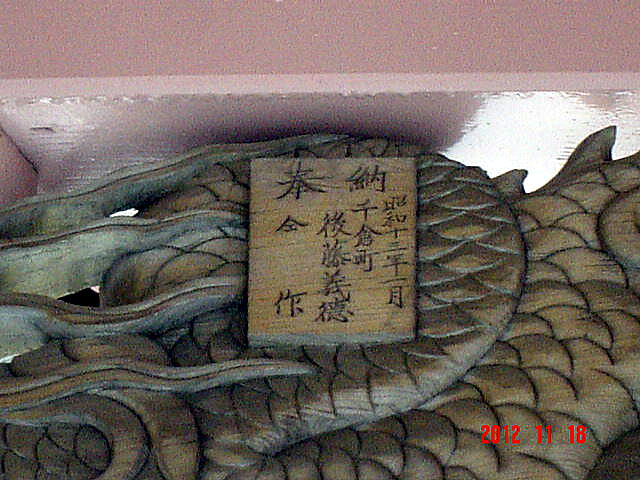 奉納
昭和十二年一月
千倉町
後藤義徳
仝 作
2012 11 18